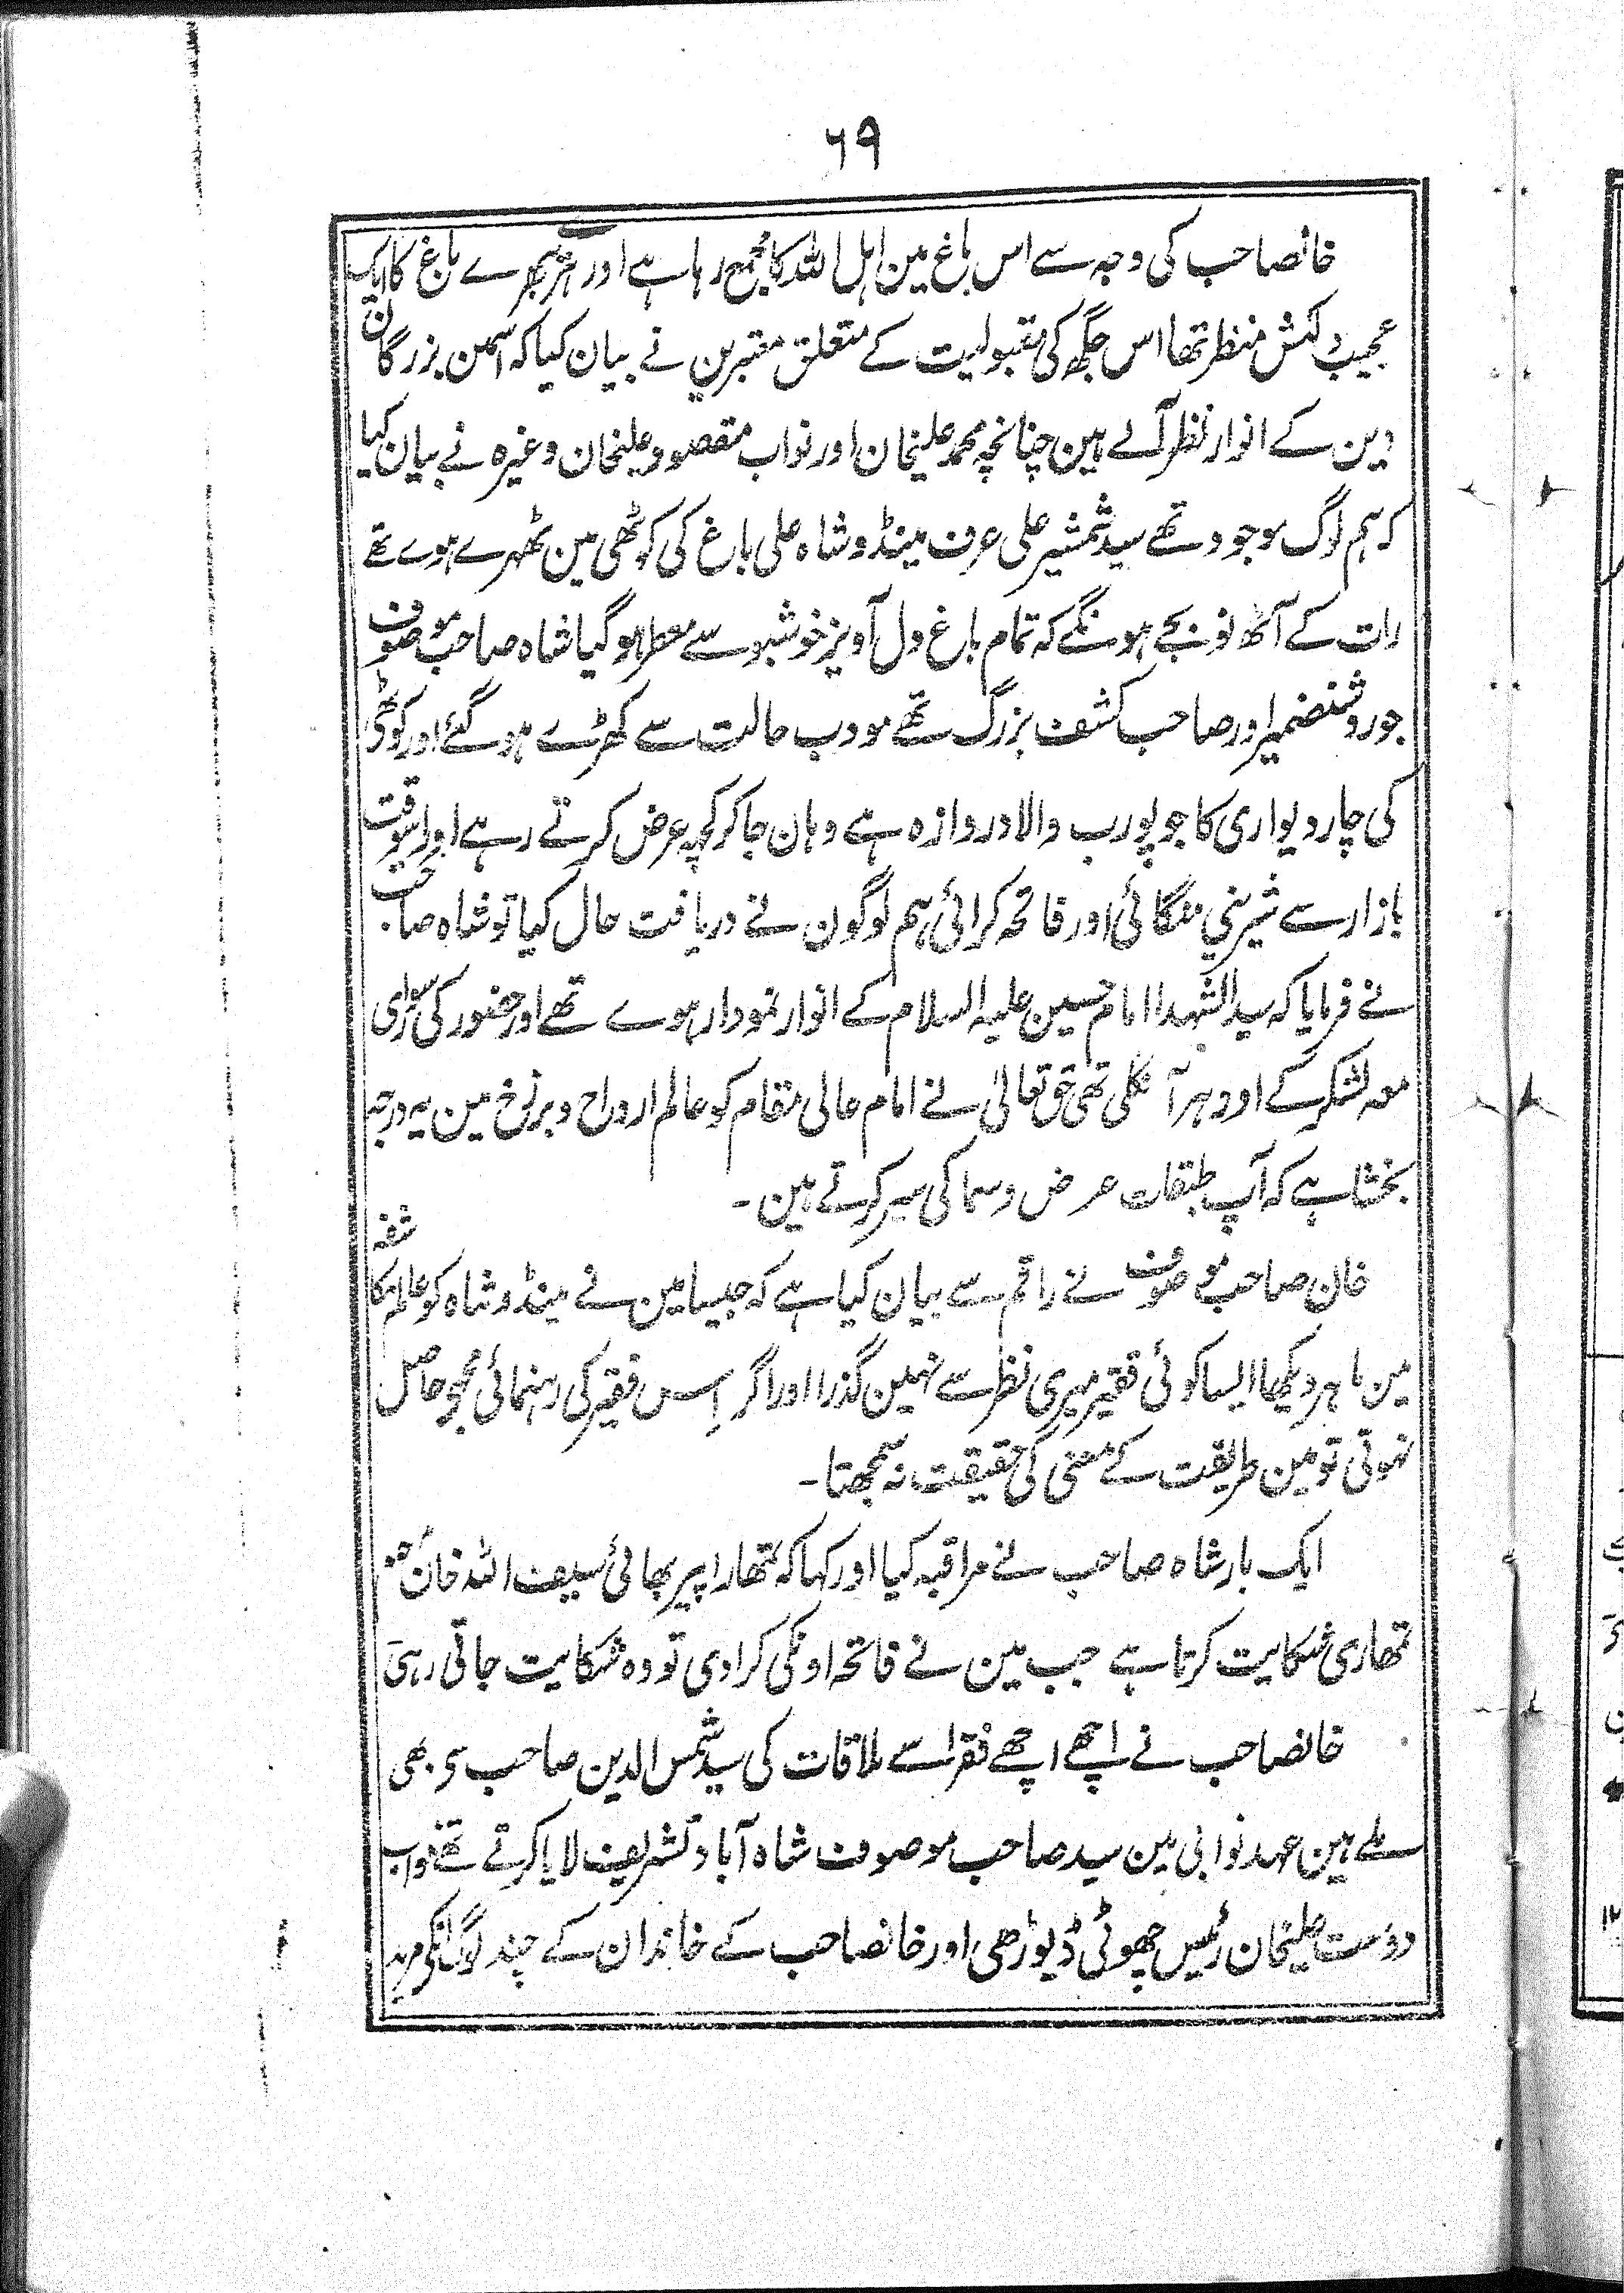 ۶۹
خانصاحب کی وجہ سے اس باغ مین اہل اللہ کا مجمع رہا ہے اور ہرے بھرے باغ کا ایک
عجیب دلکش منظر تھا اس جگہ کی مقبولیت کے متعلق معتبرین نے بیان کیا کہ اسمین بزرگان
دین کے انوار نظر آئے ہین چنانچہ محمد علیخان اور نواب مقصود علیخان وغیرہ نے بیان کیا
کہ ہم لوگ موجود تھے سید شمشیر علی عرف مینڈو شاہ علی باغ کی کوٹھی مین ٹھہرے ہوے تھے
رات کے آٹھ نو بجے ہونگے کہ تمام باغ دل آویز خوشبو سے معطر ہو گیا شاہ صاحب موصوف
جو روشنضمیر اور صاحب کشف بزرگ تھے مودب حالت سے کھڑے ہو گئے اور کوٹھی
کی چار دیواری کا جو پورب والا دروازہ ہے وہان جا کر کچھ عرض کرتے رہے اور اسوقت
بازار سے شیرینی منگائی اور فاتحہ کرائی ہم لوگون نے دریافت حال کیا تو شاہ صاحب
نے فرمایا کہ سید الشہدا امام حسین علیہ السلام کے انوار نمودار ہوے تھے اور حضور کی سواری
معہ لشکر کے اودہر آ نکلی تھی حق تعالیٰ نے امام عالی مقام کو عالم ارواح و برزخ مین یہ درجہ
بخشا ہے کہ آپ طبقات عرض و سما کی سیر کرتے ہین ۔
خان صاحب موصوف نے راقم سے بیان کیا ہے کہ جیسا مین نے مینڈو شاہ کو علم مکاشفہ
مین ماہر دیکھا ایسا کوئی فقیر میری نظر سے نہین گذرا اور اگر اِس فقیر کی رہنمائی مجھے حاصل
نہوتی تو مین طریقت کے معنی کی حقیقت نہ سمجھتا ۔
ایک بار شاہ صاحب نے مراقبہ کیا اور کہا کہ تمھارا پیر بھائی سیف اللہ خان
تمھاری شکایت کرتا ہے جب مین نے فاتحہ اونکی کرا دی تو وہ شکایت جاتی رہی
خانصاحب نے اچھے اچھے فقرا سے ملاقات کی سید شمس الدین صاحب سے بھی
ملے ہین عہد نوابی مین سید صاحب موصوف شاہ آباد تشریف لایا کرتے تھے نواب
دوست علیخان رئیس چھوٹی ڈیوڑھی اور خانصاحب کے خاندان کے چند لوگ انکے مرید